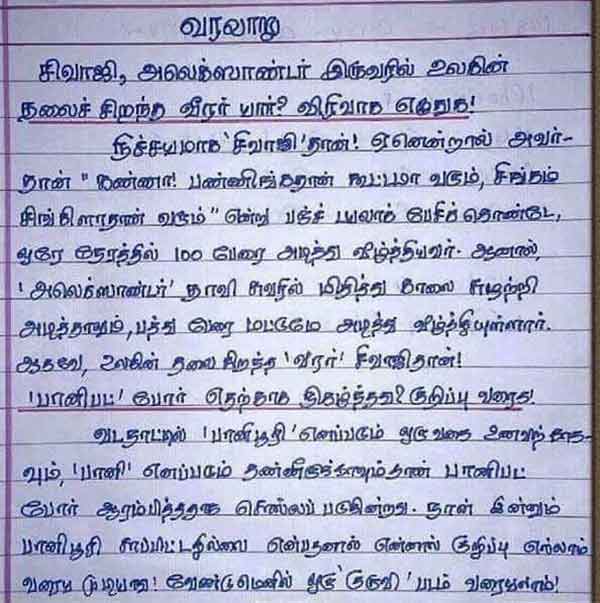 வரலாறு
சிவாஜி, அலெக்ஸாண்டர் இருவரில் உலகின்
தலைச் சிறந்த வீரர் யார்? விரிவாக எழுதுக!
நிச்சயமாக 'சிவாஜி' தான்! ஏனென்றால் அவர்-
தான் "கண்ணா! பண்ணிங்கதான் கூட்டமா வரும், சிங்கம்
சிங்கிளாதான் வரும்" என்று பஞ்ச் டயலாக் பேசிக் கொண்டே,
ஒரே நேரத்தில் 100 பேரை அடித்து வீழ்த்தியவர். ஆனால்,
'அலெக்ஸாண்டர்' தாவி சுவரில் மிதித்து காலை சுழற்றி
அடித்தாலும், பத்து பேரை மட்டுமே அடித்து வீழ்த்தியுள்ளார்.
ஆகவே, உலகின் தலை சிறந்த 'வீரர்' சிவாஜிதான்!
'பானிபட்' போர் எதற்காக நிகழ்ந்தது? குறிப்பு வரைக!
வடநாட்டில் 'பானிபூரி' எனப்படும் ஒரு வகை உணவுக்காக-
வும், 'பானி' எனப்படும் தண்ணீருக்காகவும்தான் பானிபட்
போர் ஆரம்பித்ததாக சொல்லப் படுகின்றது. நான் இன்னும்
பானிபூரி சாப்பிட்டதில்லை என்பதனால் என்னால் குறிப்பு எல்லாம்
வரைய முடியாது! வேண்டுமெனில் ஒரு 'குருவி' படம் வரையலாம்!